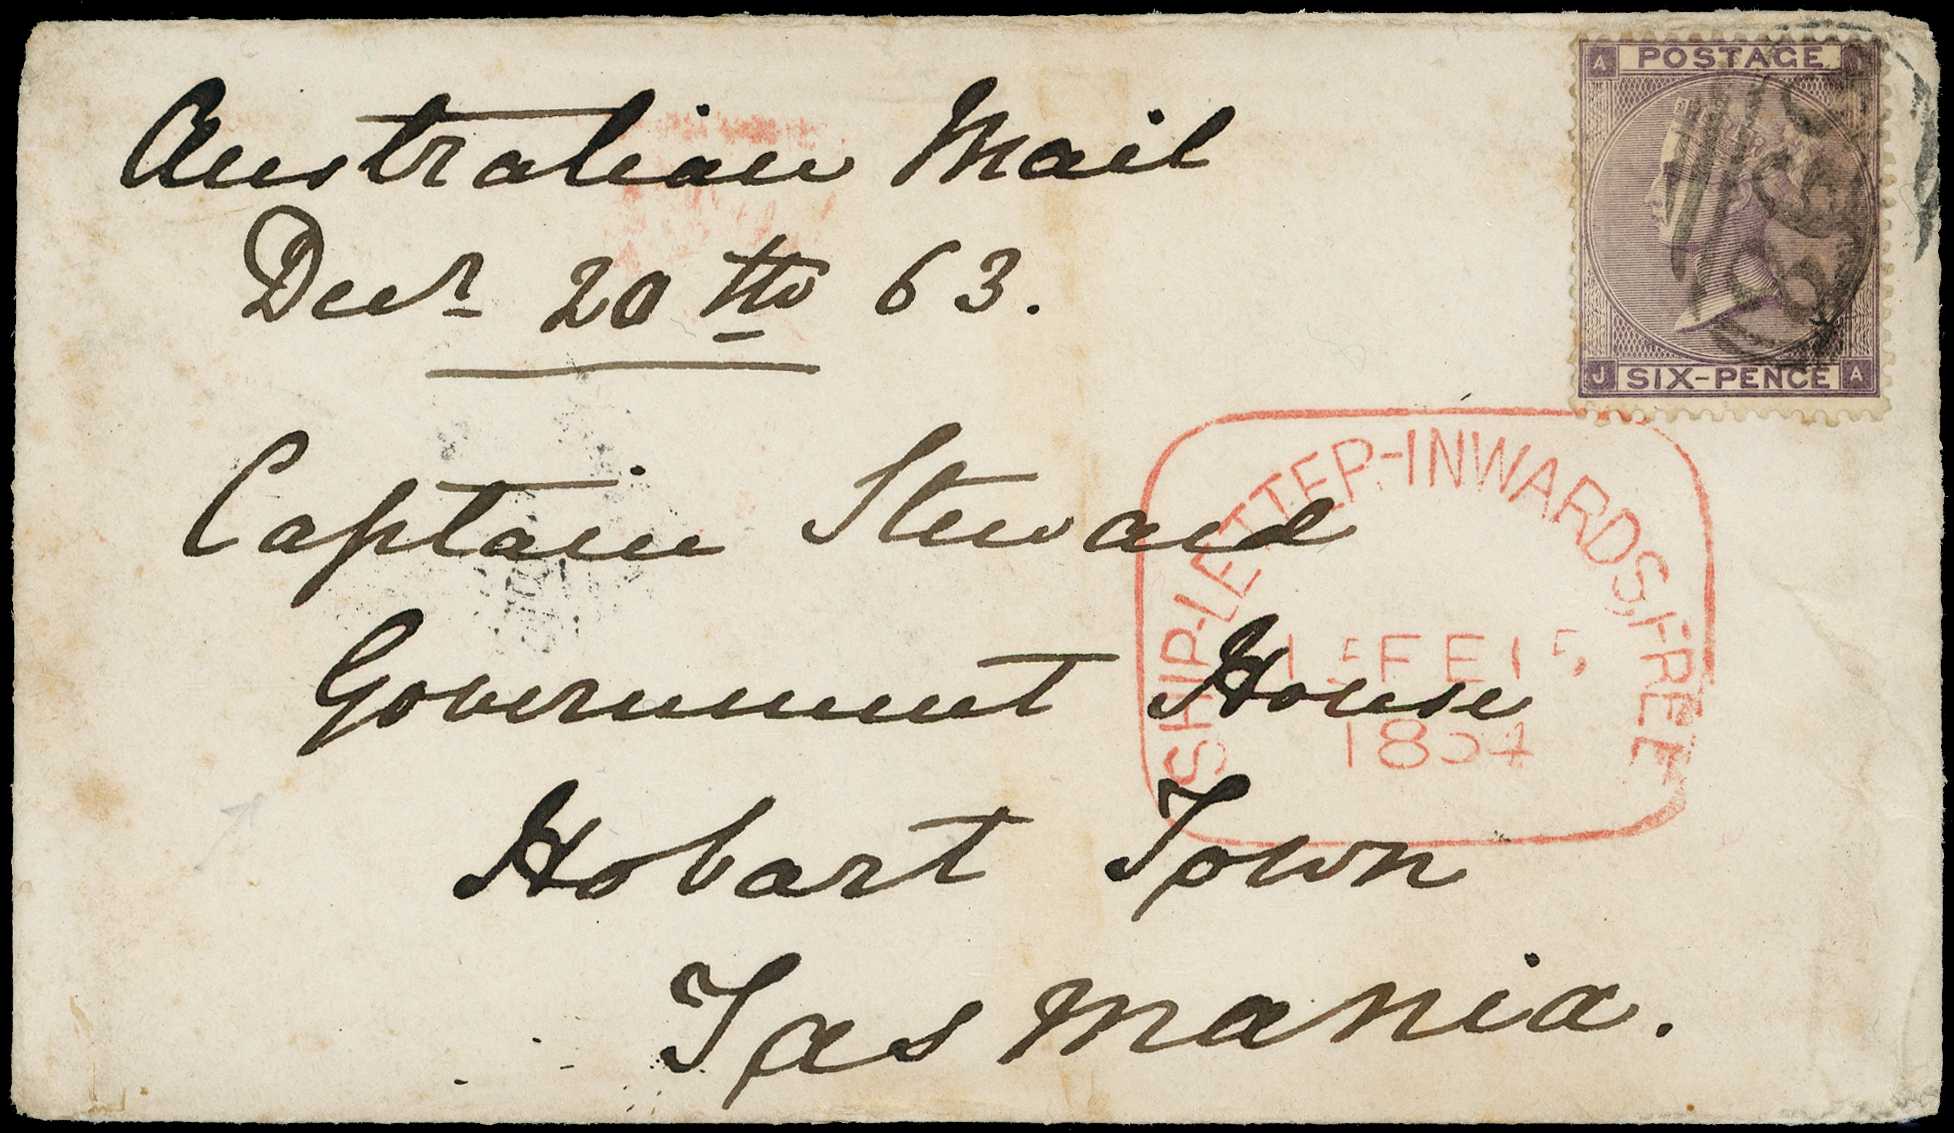 Australian Mail
Decr 20th 63.
Captain Steward
Government House
Hobart Town
Tasmania.
POSTAGE
A
J
SIX-PENCE
A
SHIP-LETTER-INWARDS, FREE
15 FE 15
1864